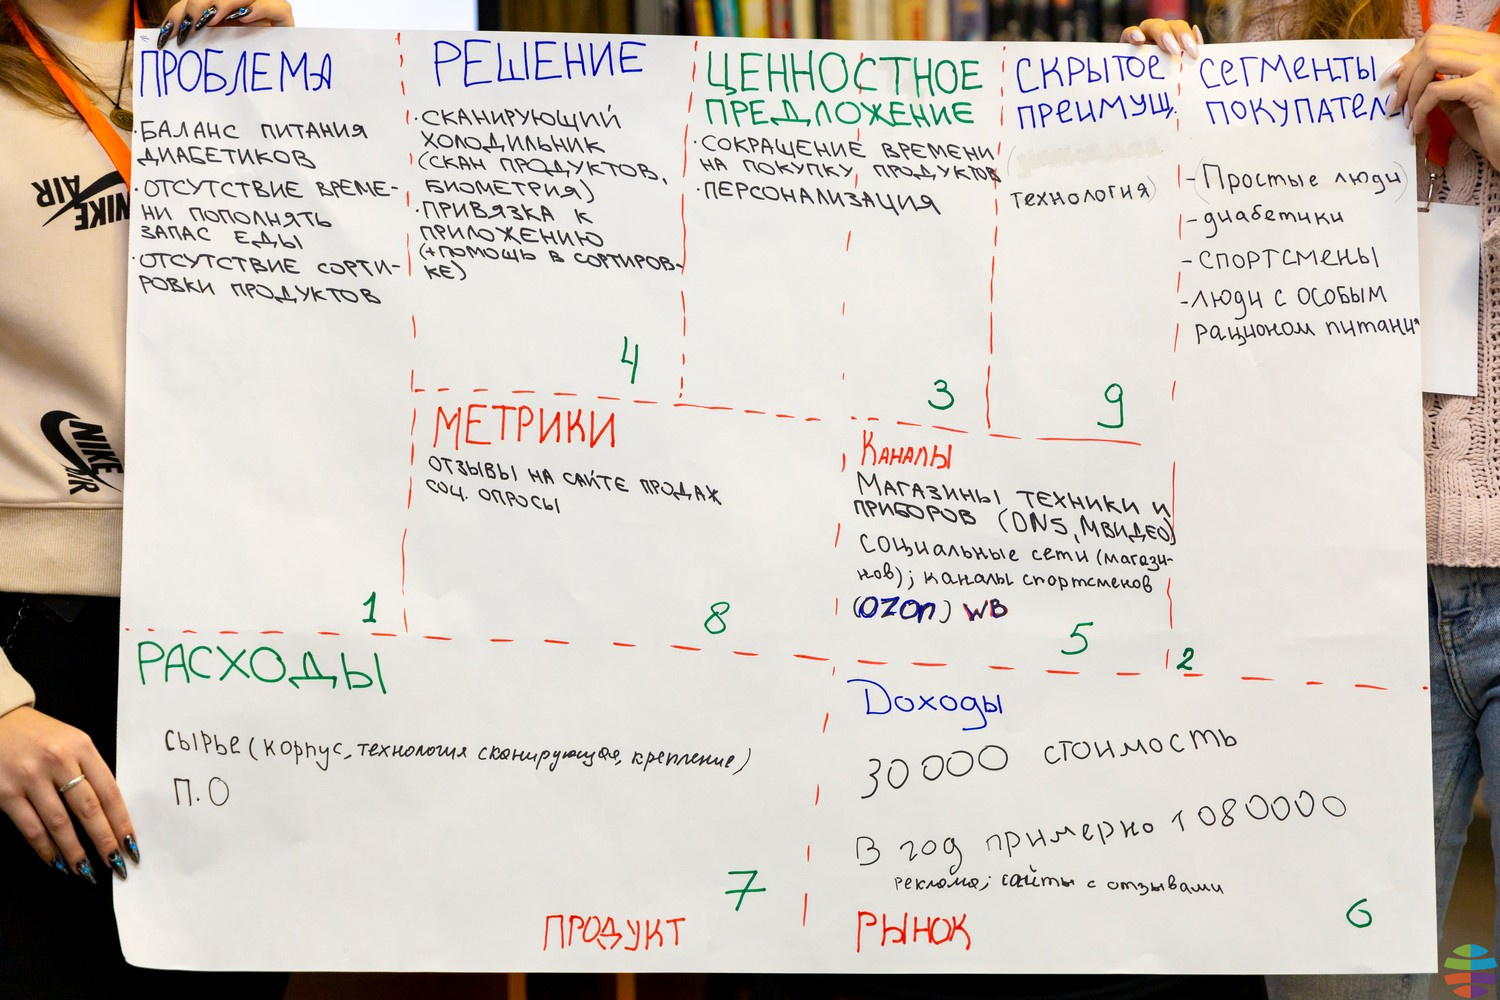 ПРОБЛЕМА
· БАЛАНС ПИТАНИЯ
ДИАБЕТИКОВ
· ОТСУТСТВИЕ ВРЕМЕ-
НИ ПОПОЛНЯТЬ
ЗАПАС ЕДЫ
· ОТСУТСТВИЕ СОРТИ-
РОВКИ ПРОДУКТОВ
1
РЕШЕНИЕ
· СКАНИРУЮЩИЙ
ХОЛОДИЛЬНИК
(СКАН ПРОДУКТОВ,
БИОМЕТРИЯ)
· ПРИВЯЗКА К
ПРИЛОЖЕНИЮ
(+ПОМОЩЬ В СОРТИРОВ-
КЕ)
4
МЕТРИКИ
ОТЗЫВЫ НА САЙТЕ ПРОДАЖ
СОЦ. ОПРОСЫ
8
ЦЕННОСТНОЕ
ПРЕДЛОЖЕНИЕ
· СОКРАЩЕНИЕ ВРЕМЕНИ
НА ПОКУПКУ ПРОДУКТОВ
· ПЕРСОНАЛИЗАЦИЯ
3
СКРЫТОЕ
ПРЕИМУЩ.
технология)
9
Каналы
МАГАЗИНЫ ТЕХНИКИ И
ПРИБОРОВ (DNS, МВИДЕО)
социальные сети (магази-
нов); каналы спортсменов
(OZON) WB
5
СЕГМЕНТЫ
ПОКУПАТЕЛ
- (Простые люди)
- диабетики
- СПОРТСМЕНЫ
- люди с особым
рационом питания
2
РАСХОДЫ
сырье (корпус, технология сканирующая, крепление)
П.О
7
ПРОДУКТ
Доходы
30000 стоимость
В год примерно 1080000
реклама; сайты с отзывами
6
РЫНОК
NIKE
AIR
NIKE
AIR